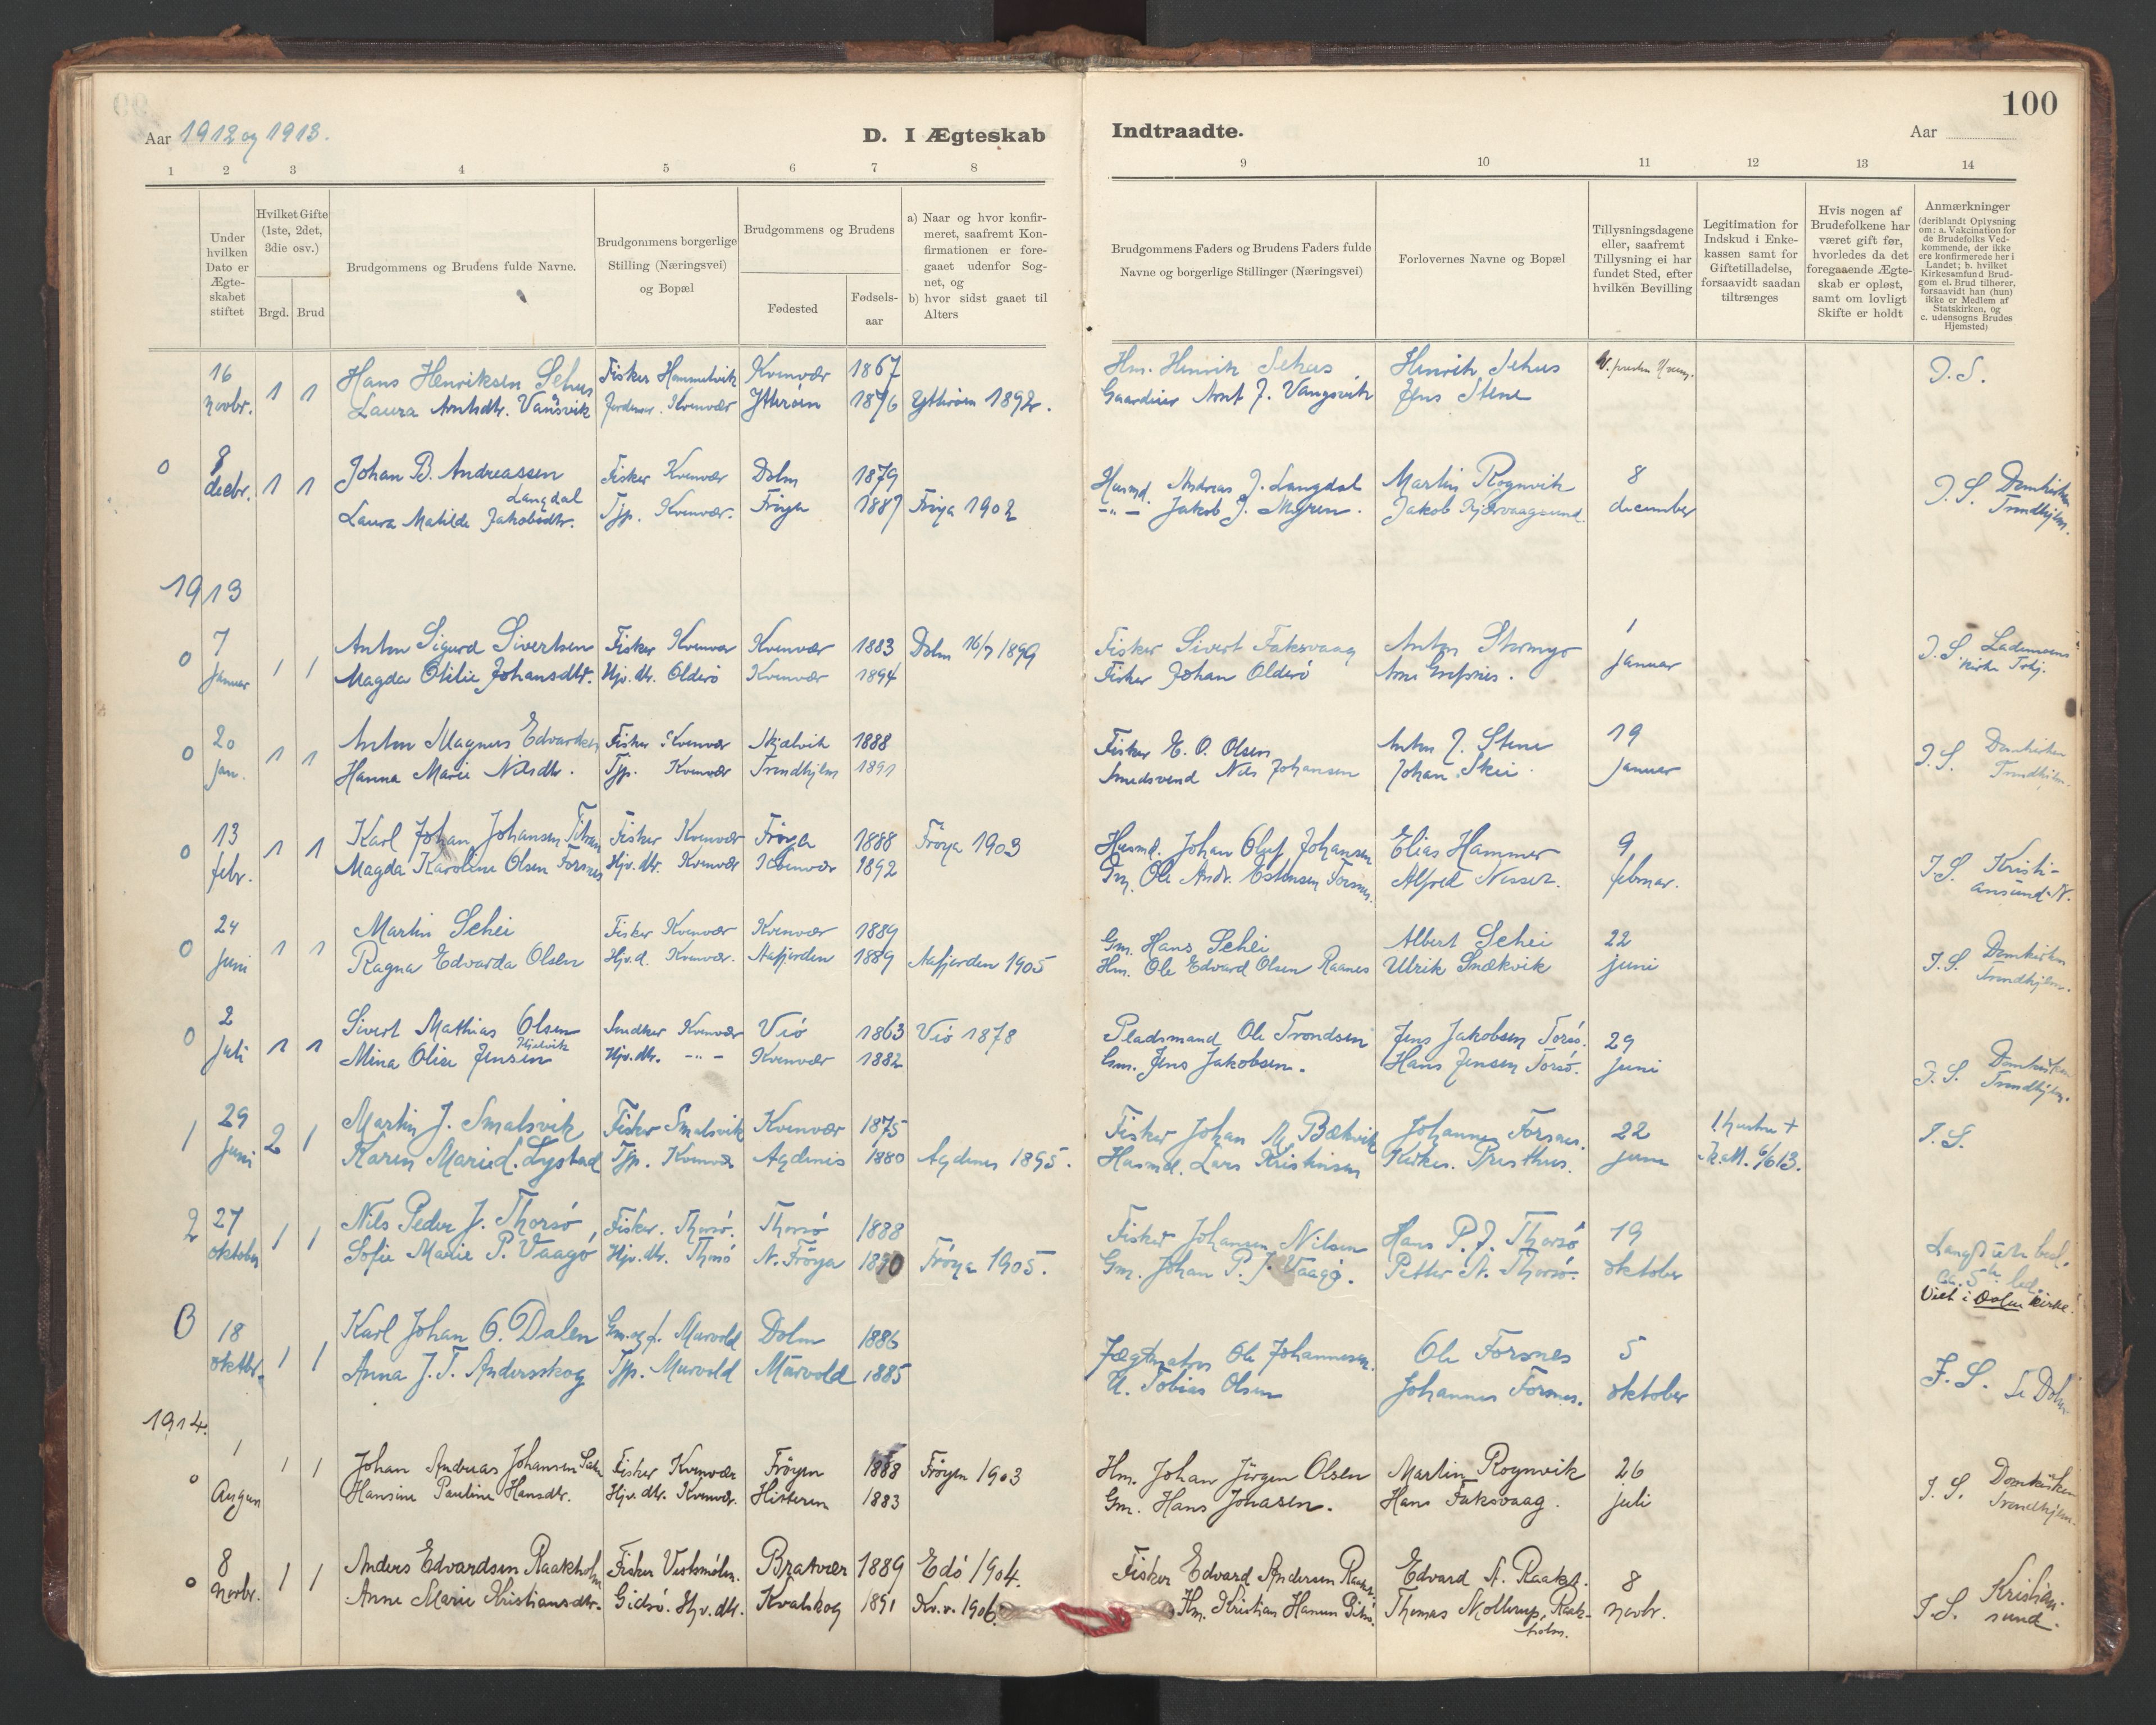 100
Aar 1912 og 1913.
D. I Ægteskab
Indtraadte.
Aar
1 2 3 4 5 6 7 8
9 10 11 12 13 14
Under hvilken Dato er Ægteskabet stiftet
Hvilket Gifte (1ste, 2det, 3die osv.)
Brgd. Brud
Brudgommens og Brudens fulde Navne.
Brudgommens borgerlige Stilling (Næringsvei) og Bopæl
Brudgommens og Brudens
Fødested
Fødsels-aar
a) Naar og hvor konfirmeret, saafremt Konfirmationen er foregaaet udenfor Sognet, og
b) hvor sidst gaaet til Alters
Brudgommens Faders og Brudens Faders fulde Navne og borgerlige Stillinger (Næringsvei)
Forlovernes Navne og Bopæl
Tillysningsdagene eller, saafremt Tillysning ei har fundet Sted, efter hvilken Bevilling
Legitimation for Indskud i Enkekassen samt for Giftetilladelse, forsaavidt saadan tiltrænges
Hvis nogen af Brudefolkene har været gift før, hvorledes da det foregaaende Ægteskab er opløst, samt om lovligt Skifte er holdt
Anmærkninger (deriblandt Oplysning om: a. Vakcination for de Brudefolks Vedkommende, der ikke ere konfirmerede her i Landet; b. hvilket Kirkesamfund Brudgom el. Brud tilhører, forsaavidt han (hun) ikke er Medlem af Statskirken, og c. udensogns Brudes Hjemsted)
16 novbr. 1 1 Hans Henriksen Sehus Fisker Hammelvik Kvenvær 1867 Hm. Henrik Sehus Henrik Sehus J. S.
Laura Arntsdtr. Vangsvik Kvenvær Ytterøen 1876 Ytterøen 1892. Gaardeier Arnt J. Vangsvik Jens Stene
0 8 decbr. 1 1 Johan B. Andreassen Langdal Fisker Kvenvær Dolm 1879 Husmd. Andreas J. Langdal Martin Rognvik 8 december J. S. Domkirken Trondhjem.
Laura Matilde Jakobsdtr. Tjp. Kvenvær. Frøya 1887 Frøya 1902 -"- Jakob J. Myren. Jakob Kjærvaagsund.
1913
0 7 Januar 1 1 Anton Sigurd Sivertsen Fisker Kvenvær Kvenvær 1883 Dolm 16/7 1899 Fisker Sivert Faksvaag Anton 1 Januar J. S. Lademoens kirke Trhj.
Magda Otilie Johansdtr. Hjv. dtr. Olderø Kvenvær 1894 Fisker Johan Olderø Arne
0 20 Jan. 1 1 Anton Magnus Edvardsen Fisker Kvenvær 1888 Fisker E. O. Olsen Anton J. Stene 19 Januar J. S. Domkirken Trondhjem.
Hanna Marie Nilsdtr. Tjp. Kvenvær Trondhjem 1891 Smedsvend Nils Johansen Johan Skei.
0 13 febr. 1 1 Karl Johan Johansen Titran Fisker Kvenvær Frøya 1888 Frøya 1903 Husmd. Johan Oluf Johansen Elias Hammer 9 februar. J. S. Kristiansund N.
Magda Karoline Olsen Forsnes Hjv. dtr. Kvenvær Kvenvær 1892 Gm. Ole Andr. Estensen Forsnes Alfred Nesset.
0 24 juni 1 1 Martin Schei Fisker Kvenvær Kvenvær 1889 Gm. Hans Schei Albert Schei 22 juni J. S. Domkirken Trondhjem.
Ragna Edvarda Olsen Hjv. d. Kvenvær. Aafjorden 1889 Aafjorden 1905 Hm. Ole Edvard Olsen Raanes Ulrik Snækvik
0 2 juli 1 1 Sivert Mathias Olsen Snedker Kvenvær Veø 1863 Veø 1878 Pladsmand Ole Trondsen Jens Jakobsen Torsø. 29 juni J. S. Domkirken Trondhjem.
Mina Olise Jensen Hjv. dtr. -"- Kvenvær 1882 Gm. Jens Jakobsen. Hans Jensen Torsø.
1 29 juni 2 1 Martin J. Smalsvik Fisker Smalsvik Kvenvær 1875 Fisker Johan M. Bækvik Johannes Forsnes. 22 juni 1 hustru + 6/6 13. J. S.
Karen Marie d. Lystad Tjp. Kvenvær Agdenes 1880 Agdenes 1895. Husmd. Lars Kristiansen Kirkes. Presthus.
2 27 oktober 1 1 Nils Peder J. Thorsø Fisker. Thorsø. Thorsø 1888 Fisker Johannes Nilsen Hans P. J. Thorsø 19 oktober
Sofie Marie P. Vaagø Hjv. dtr. Thorsø N. Frøya 1890 Frøya 1905. Gm. Johan P. J. Vaagø. Petter N. Thorsø. Viet i Dolm kirke.
3 18 oktbr. 1 1 Karl Johan O. Dalen Gm. og f. Murvold Dolm 1886 Jægtmatros Ole Johannesen. Ole Forsnes 5 oktober J. S. Se Dolm
Anna J. T. Andersskog Tjp. Murvold Murvold 1885 U. Tobias Olsen Johannes Forsnes.
1914.
0 1 August 1 1 Johan Andreas Johansen Fisker Kvenvær Frøyen 1888 Frøyen 1903 Hm. Johan Jörgen Olsen Martin Rognvik 26 juli J. S. Domkirken Trondhjem.
Hansine Pauline Hansdtr. Hjv. dtr. Kvenvær. Hitteren 1883 Gm. Hans Jonasen. Hans Faksvaag.
0 8 novbr. 1 1 Anders Edvardsen Raakholm Fisker Vestsmølen. Bratvær 1889 Edø 1904. Fisker Edvard Andersen Raakh. Edvard A. Raakh. 8 novbr. J. S. Kristiansund.
Anne Marie Kristiansdtr. Gidsø. Hjv. dtr. Kvalskog 1891 Kv.v. 1906. Hm. Kristian Hansen Thomas Mollerup, Raakholm.